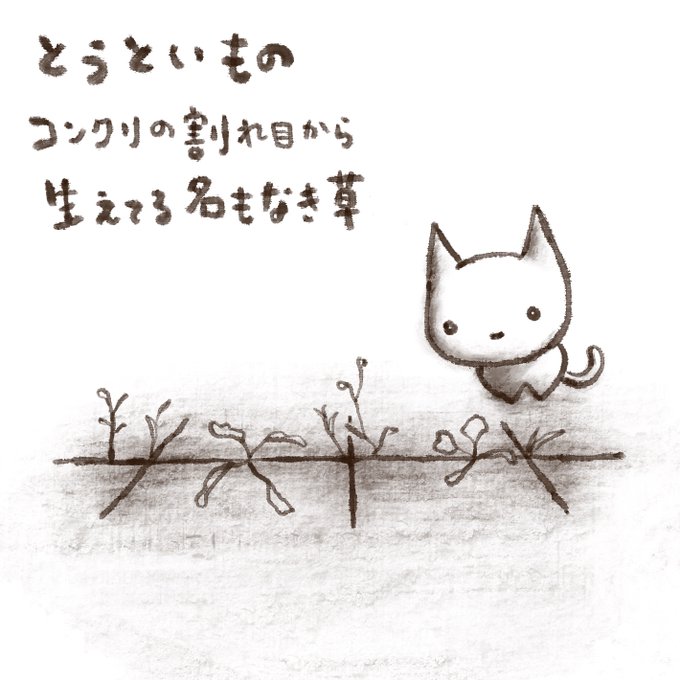 とうといもの
コンクリの割れ目から
生えてる名もなき草